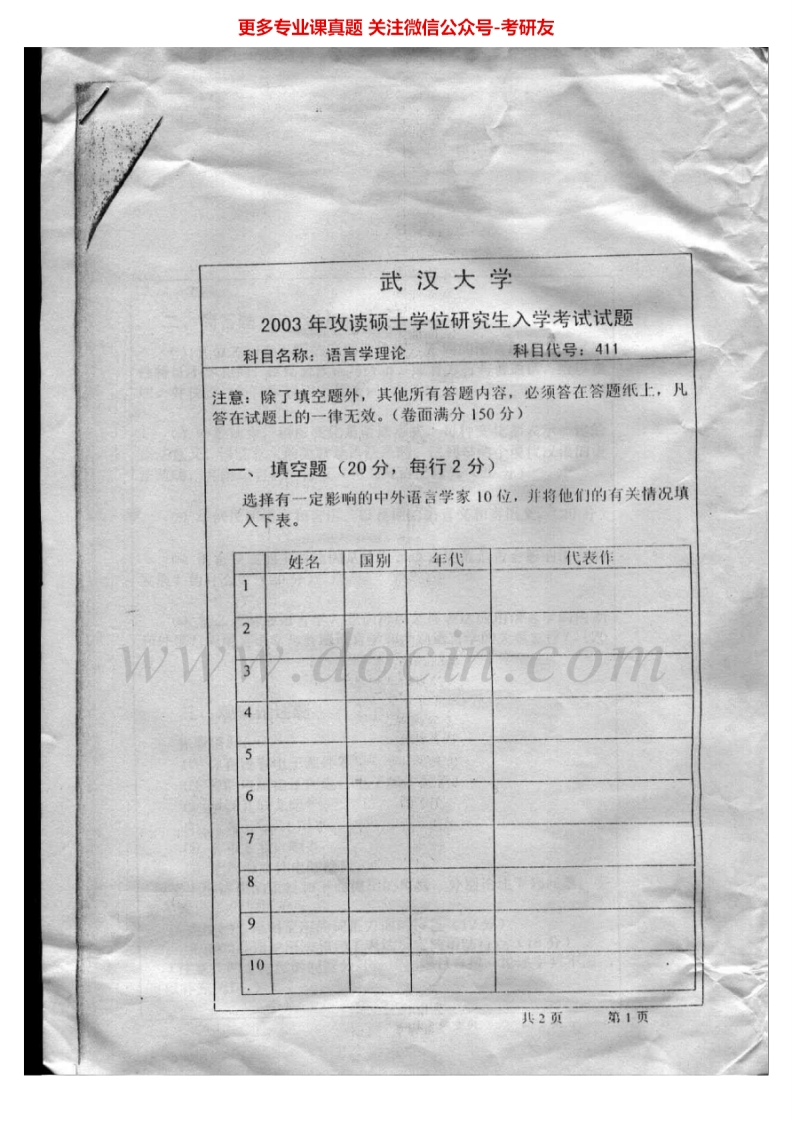 更多专业课真题 关注微信公众号-考研友
武汉大学
2003 年攻读硕士学位研究生入学考试试题
科目名称：语言学理论 科目代号：411
注意：除了填空题外，其他所有答题内容，必须答在答题纸上，凡
答在试题上的一律无效。（卷面满分 150 分）
一、 填空题（20 分，每行 2 分）
选择有一定影响的中外语言学家 10 位，并将他们的有关情况填
入下表。
姓名 国别 年代 代表作
1
2
www.docin.com
3
4
5
6
7
8
9
10
共 2 页 第 1 页